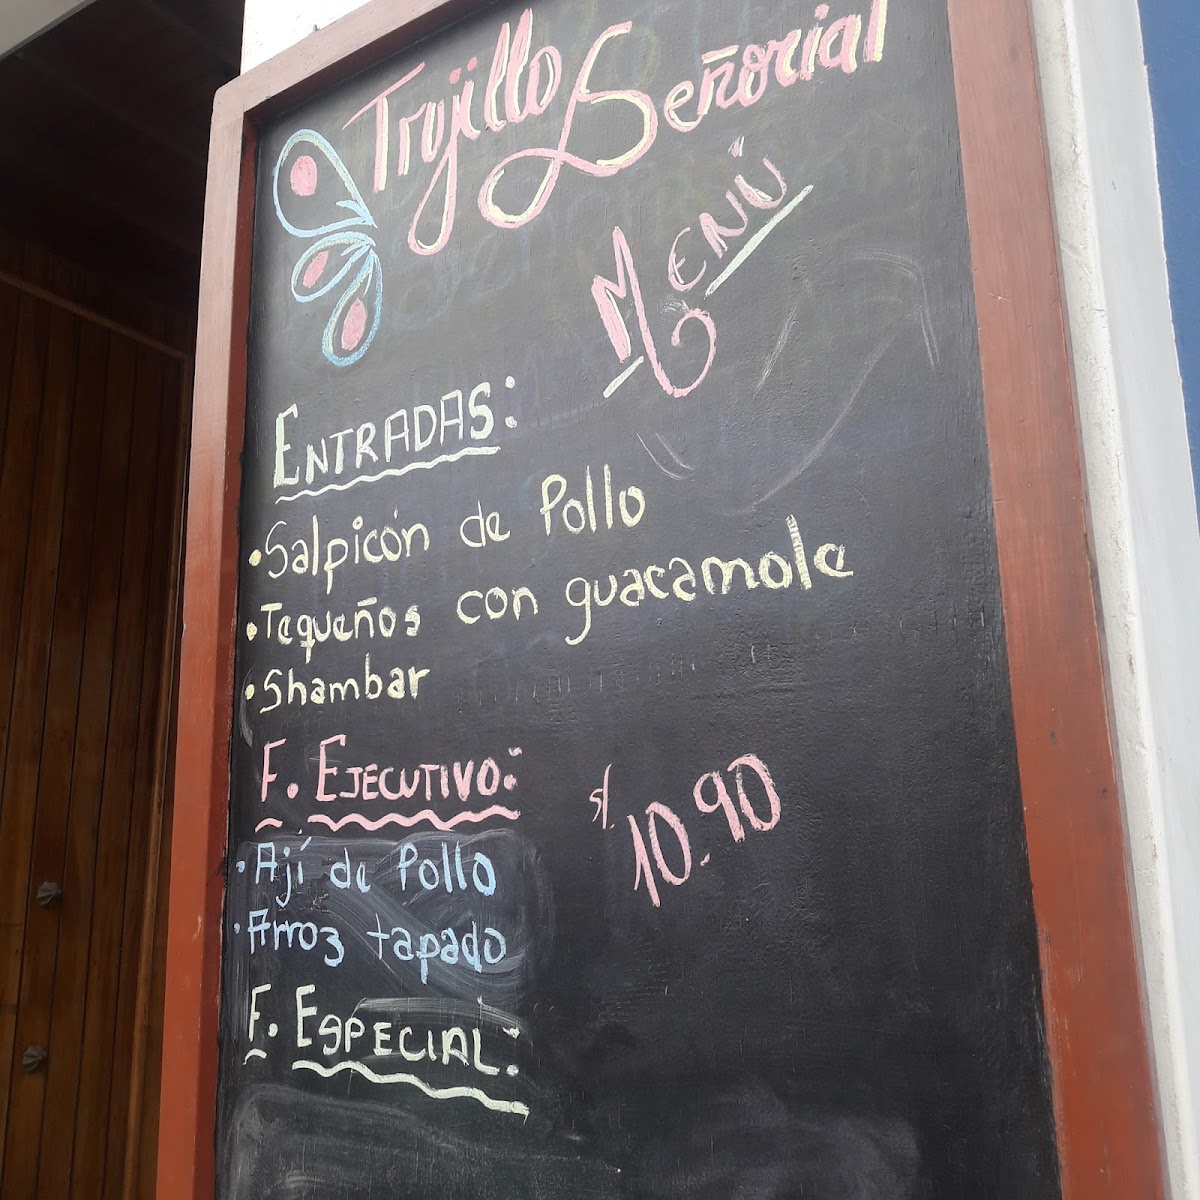 Trujillo Señorial
Menú
Entradas:
• Salpicón de Pollo
• Tequeños con guacamole
• Shambar
F. Ejecutivo:
s/. 10.90
• Ají de Pollo
• Arroz tapado
F. Especial: